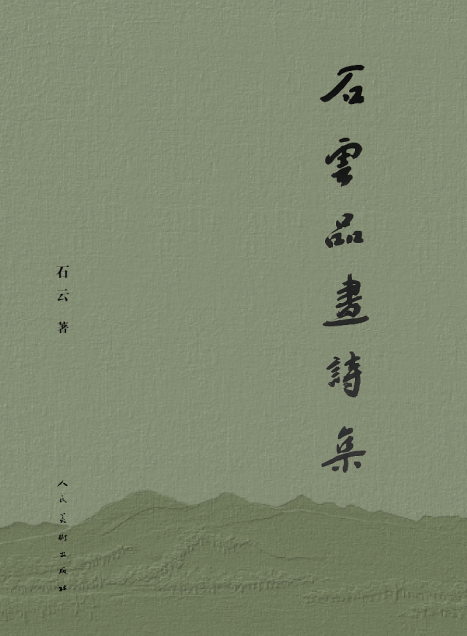 石雲品畫詩集
石云 著
人民美術出版社